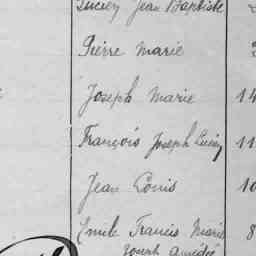 Lucien Jean Baptiste
Pierre Marie
Joseph Marie 14
François Joseph Lucien 11
Jean Louis 10
Emile Francis Marie 8
Joseph Amédée